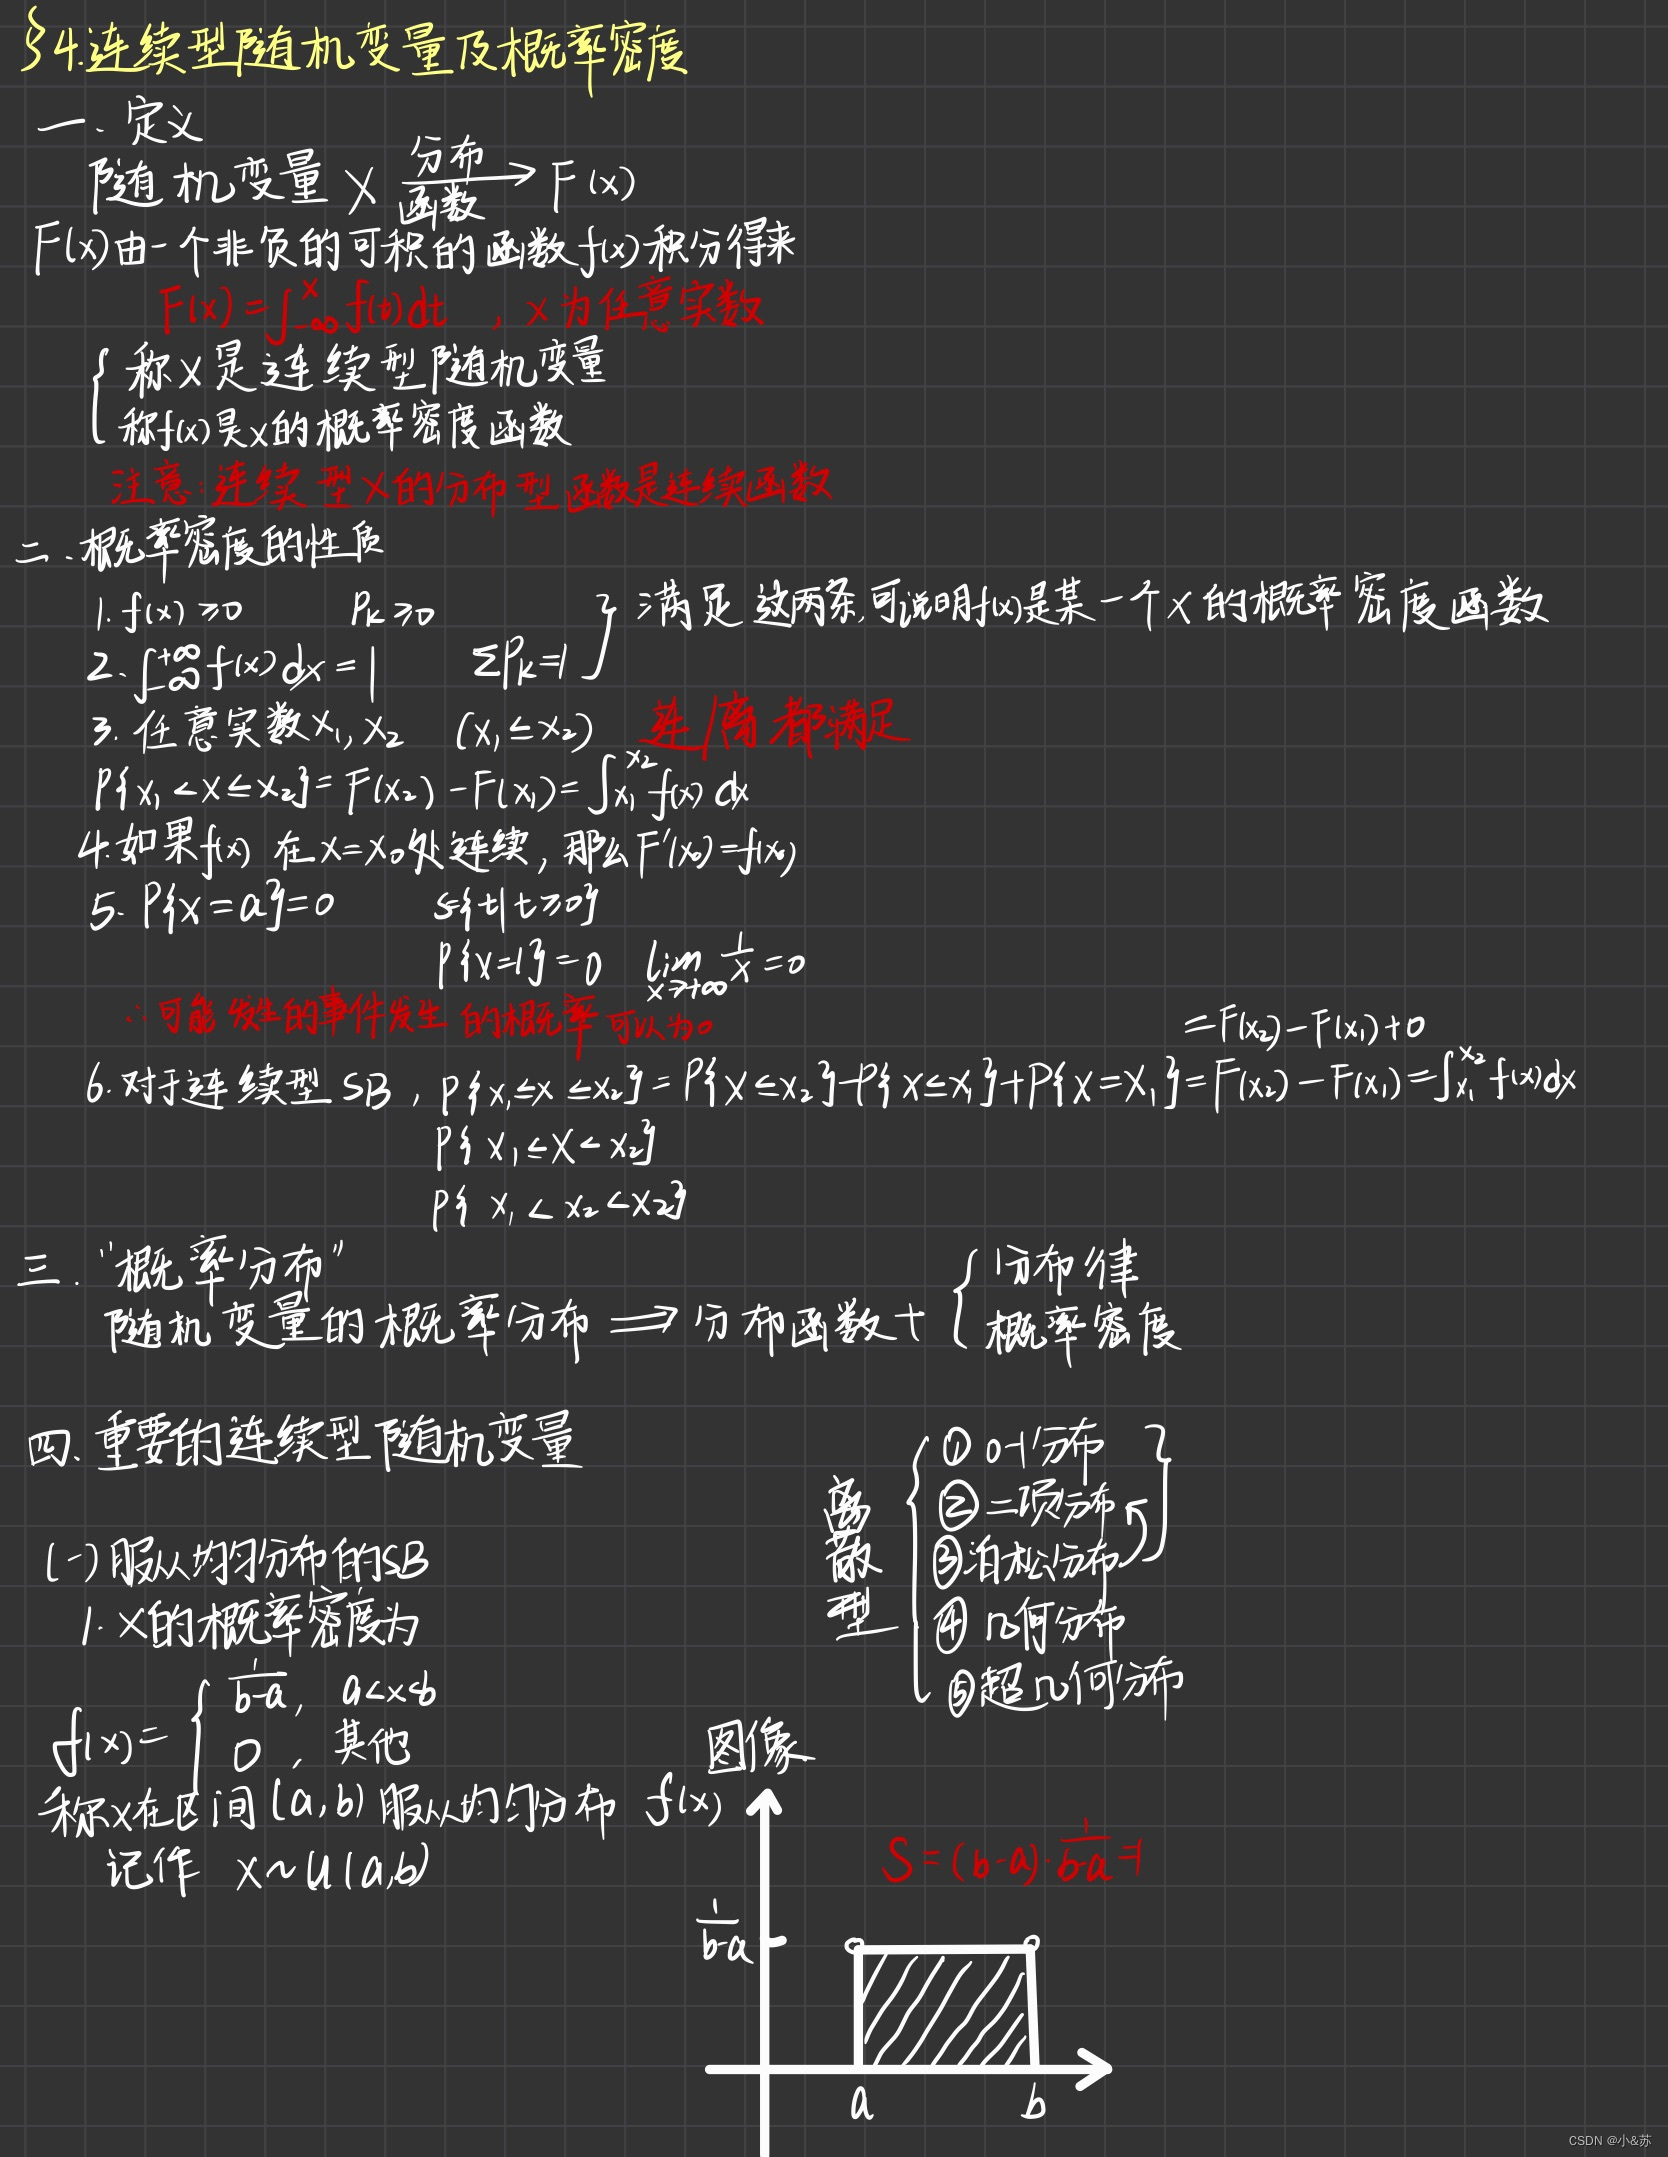 §4.连续型随机变量及概率密度
一、定义
随机变量 X 分布函数→ F(x)
F(x)由一个非负的可积的函数f(x)积分得来
F(x)=∫_{-∞}^{x} f(t)dt ，x为任意实数
{ 称X是连续型随机变量
称f(x)是X的概率密度函数
注意:连续型X的分布型函数是连续函数
二、概率密度的性质
1. f(x)≥0 P_k≥0 } 满足这两条,可说明f(x)是某一个X的概率密度函数
2. ∫_{-∞}^{+∞} f(x)dx=1 ΣP_k=1
3. 任意实数x₁,x₂ (x₁≤x₂) 连/离都满足
P{x₁<X≤x₂}=F(x₂)-F(x₁)=∫_{x₁}^{x₂} f(x)dx
4.如果f(x)在x=x₀处连续,那么F'(x₀)=f(x₀)
5. P{X=a}=0 S={t|t≥0}
P{X=1}=0 lim_{x→+∞} 1/x=0
∴可能发生的事件发生的概率可以为0
=F(x₂)-F(x₁)+0
6.对于连续型SB, P{x₁≤x≤x₂}=P{X≤x₂}-P{X≤x₁}+P{X=X₁}=F(x₂)-F(x₁)=∫_{x₁}^{x₂} f(x)dx
P{x₁≤X<x₂}
P{x₁<x₂<x₂}
三."概率分布"
随机变量的概率分布 ⟹ 分布函数+ { 分布律
概率密度
四.重要的连续型随机变量
离散型 { ① 0-1分布
② 二项分布
③ 泊松分布
④ 几何分布
⑤ 超几何分布
(一)服从均匀分布的SB
1. X的概率密度为
f(x)= { 1/(b-a), a<x<b
0, 其他
称X在区间(a,b)服从均匀分布
记作 X~U(a,b)
图像
f(x)
S=(b-a)·1/(b-a)=1
1/(b-a)
a b
CSDN @小&苏